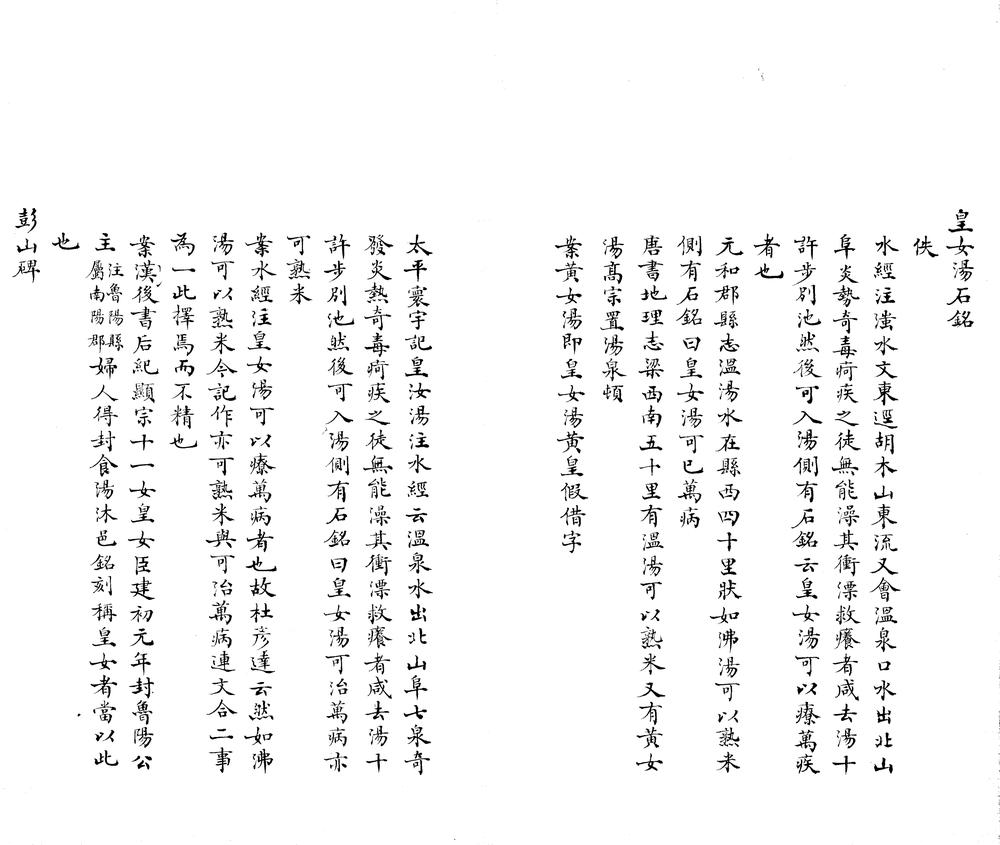 皇女湯石銘
佚
水經注滍水文東逕胡木山東流又會溫泉口水出北山
阜炎勢奇毒疴疾之徒無能澡其衝漂救癢者咸去湯十
許步別池然後可入湯側有石銘云皇女湯可以療萬疾
者也
元和郡縣志溫湯水在縣西四十里狀如沸湯可以熟米
側有石銘曰皇女湯可已萬病
唐書地理志梁西南五十里有溫湯可以熟米又有黃女
湯高宗置湯泉頓
案黃女湯即皇女湯黃皇假借字
太平寰宇記皇汝湯注水經云溫泉水出北山阜七泉奇
發炎熱奇毒疴疾之徒無能澡其衝漂救癢者咸去湯十
許步別池然後可入湯側有石銘曰皇女湯可治萬病亦
可熟米
案水經注皇女湯可以療萬病者也故杜彥達云然如沸
湯可以熟米今記作亦可熟米與可治萬病連文合二事
為一此擇焉而不精也
案漢後書后紀顯宗十一女皇女臣建初元年封魯陽公
主注魯陽縣屬南陽郡婦人得封食湯沐邑銘刻稱皇女者當以此
也
彭山碑